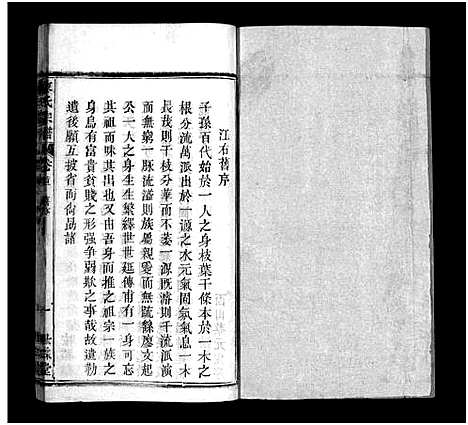 江右舊序
子孫百代始於一人之身枝葉千條本於一木之
根分流萬派出於一源之水元氣固氣氣息一木
長茂則千枝分華而不萎一源既濬則千流派演
而無窮一脉流溢則族屬親愛而無疏餘慶文起
公一人之身生生繁繹世世延傳甫有一身可忘
其祖而不思本也又由吾身而推之祖宗一族之
身烏有富貴貧賤之形强爭弱欺之事哉故遺勒
遺後願互披省而尚勗諸